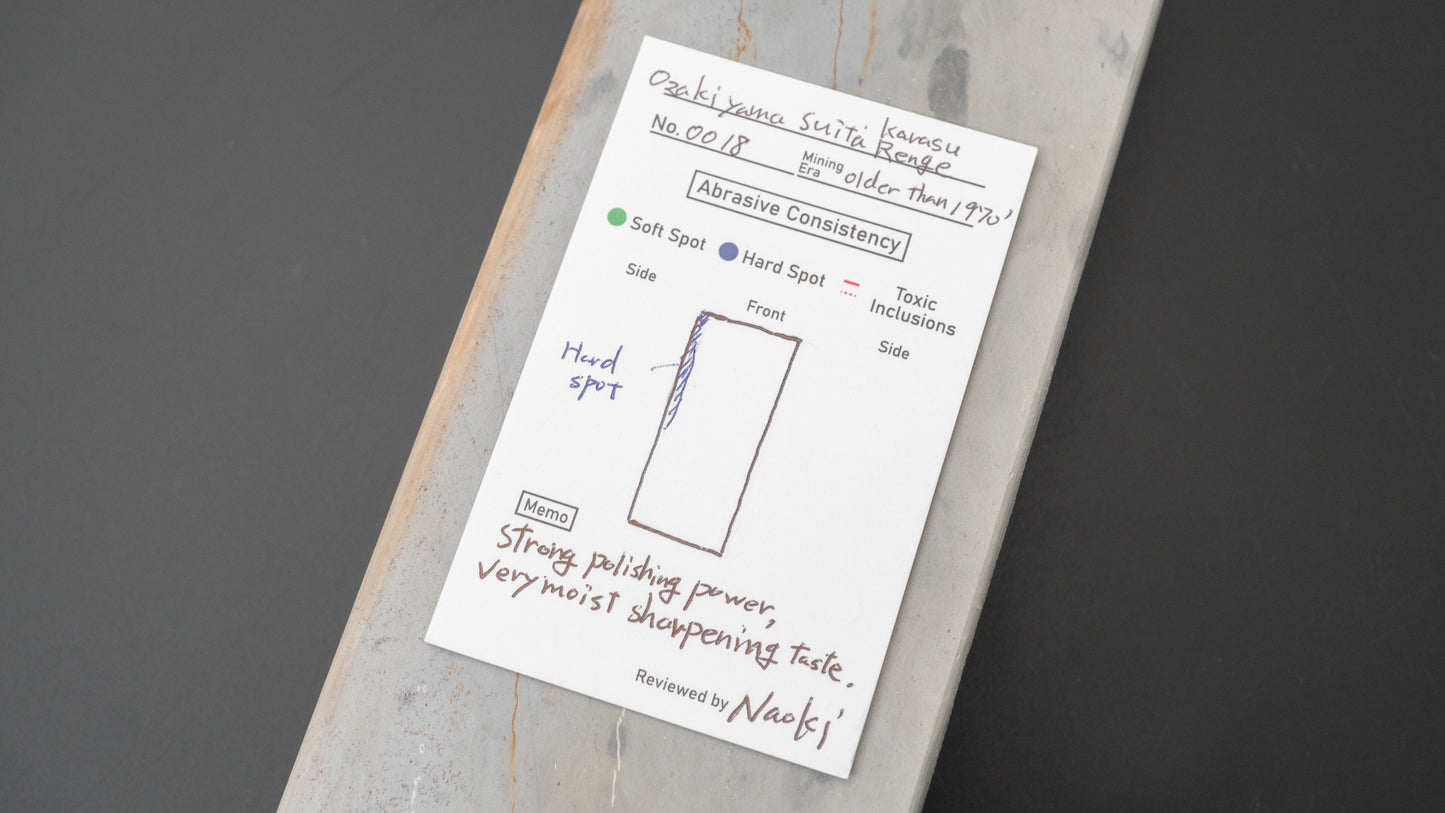 Ozakiyama Suita Karasu
Renge
No. 0018
Mining
Era older than 1970'
Abrasive Consistency
Soft Spot Hard Spot Toxic
Inclusions
Side
Front
Side
Hard
spot
Memo
Strong polishing power,
very moist sharpening taste.
Reviewed by Naoki